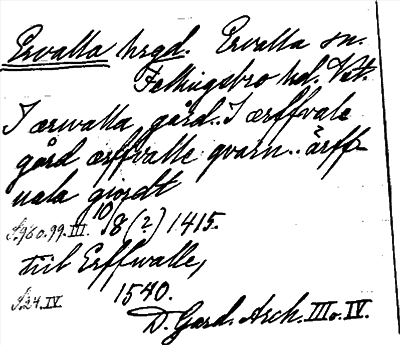 Ervalla hrgd. Ervalla sn.
Fellingsbro hd. Vstm.
I ærwalla gård.. I ærffvale
gård ærffvalle qvarn.. ärff-
uala giordt
S. 98 o. 99. III. 10/8 (?) 1415.
till Erffwalle,
S. 24. IV 1540.
D. Gard. Arch. III o. IV.